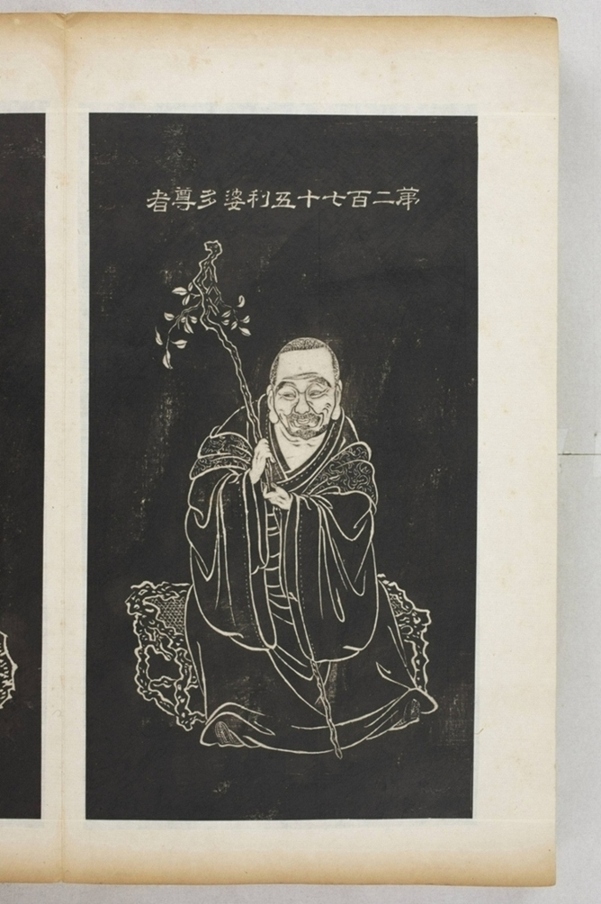 苐二百七十五利婆多尊者